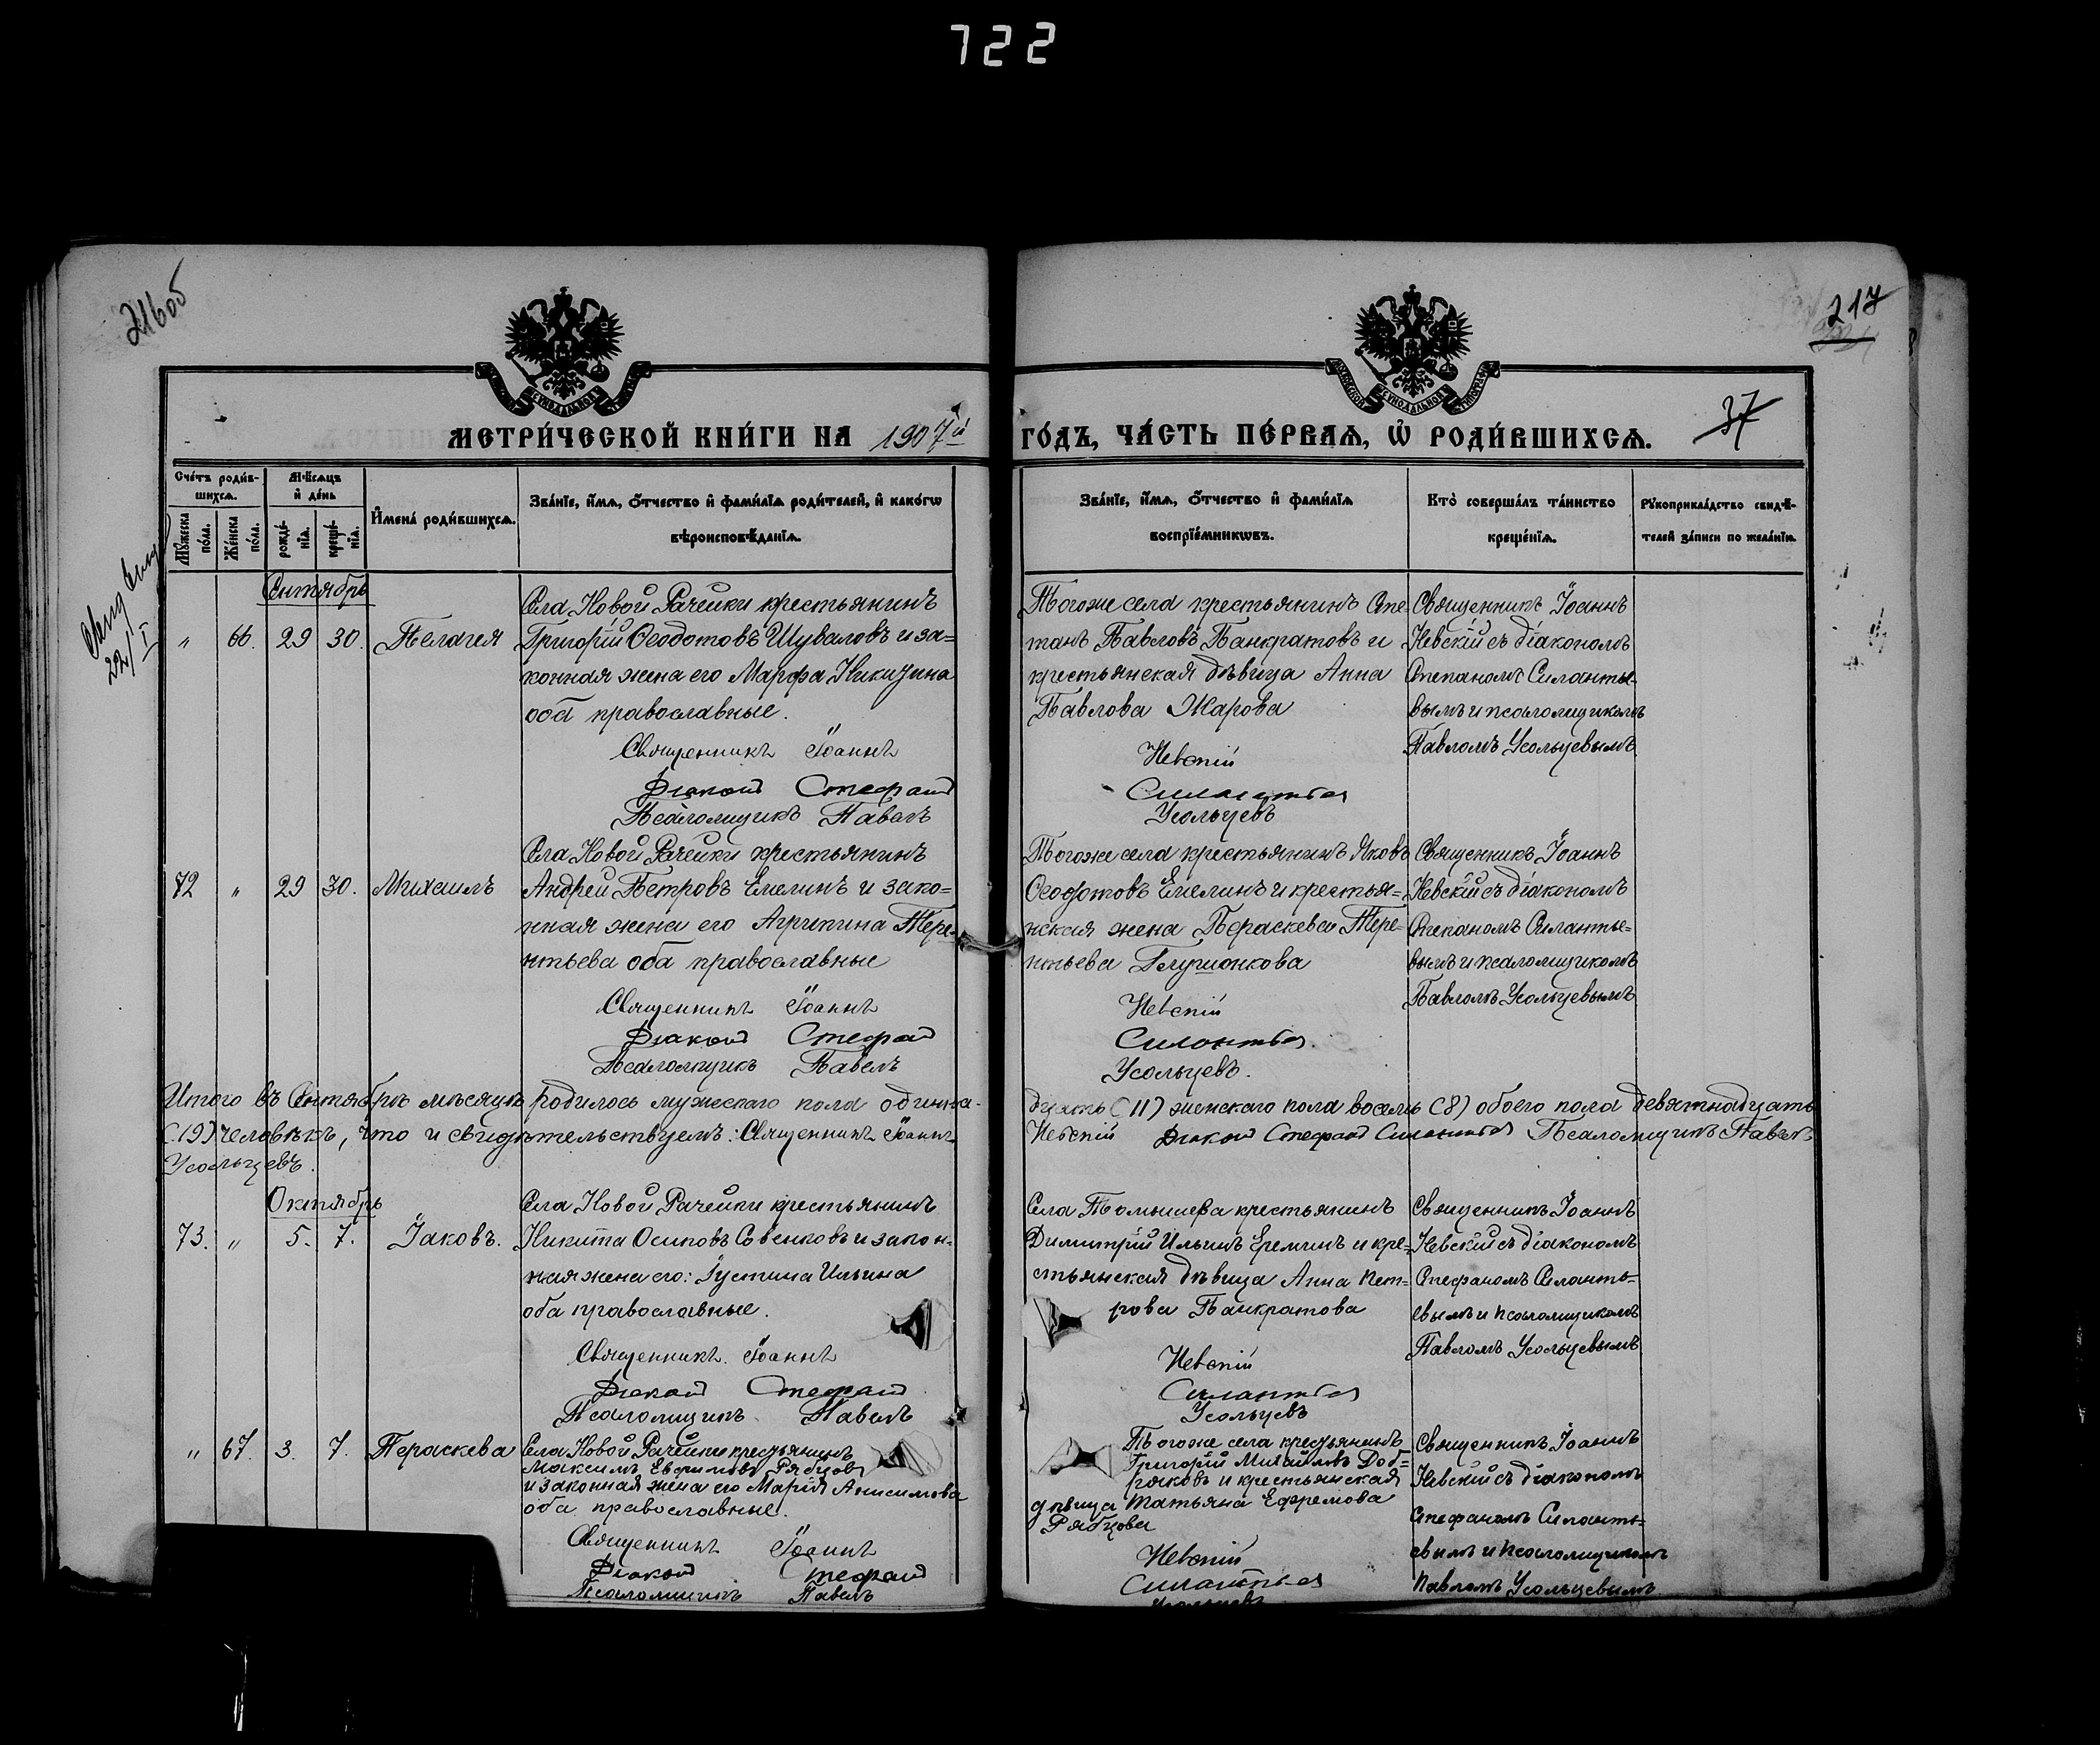 722
216об
217
37
МЕТРИ́ЧЕСКОЙ КНИ́ГИ НА 1907й ГО́ДЪ, ЧА́СТЬ ПЕ́РВАѦ, Ѡ҆ РОДИ́ВШИХСѦ.
Сче́тъ роди́в-
шихсѧ.
Мѣ́сѧцъ
и҆ де́нь
Мꙋ́жеска
по́ла.
Же́нска
по́ла.
рожде́-
нїѧ.
креще́-
нїѧ.
И҆мена́ роди́вшихсѧ.
Зва́нїе, и҆́мѧ, ѻ҆́тчество и҆ фами́лїѧ роди́телей, и҆ како́гѡ
вѣроисповѣ́данїѧ.
Зва́нїе, и҆́мѧ, ѻ҆́тчество и҆ фами́лїѧ
воспрїе́мникѡвъ.
Кто̀ соверша́лъ та́инство
креще́нїѧ.
Рꙋкоприкла́дство свидѣ́-
телей за́писи по жела́нїю.
22/I
Сентябрь
" 66. 29 30. Пелагия
Села Новой Рачейки крестьянинъ
Григорій Ѳеодотовъ Шуваловъ и за=
конная жена его Марфа Никизина
оба православные.
Священникъ Іоаннъ
Діаконъ Стефанъ
Псаломщикъ Павелъ
Тогоже села крестьянинъ Сте-
панъ Павловъ Панкратовъ и
крестьянская дѣвица Анна
Павлова Жарова
Невскій
Силантьев
Усольцевъ
Священникъ Іоаннъ
Невскій съ діакономъ
Степаномъ Силантье-
вымъ и псаломщикомъ
Павломъ Усольцевымъ
72 " 29 30. Михаилъ
Села Новой Рачейки крестьянинъ
Андрей Петровъ Емелинъ и зако=
нная жена его Агрипина Тере-
нтьева оба православные
Священникъ Іоаннъ
Діаконъ Стефан
Псаломщикъ Павелъ
Тогоже села крестьянинъ Яковъ
Ѳеодотовъ Емелинъ и крестья=
нская жена Пераскевая Тере-
нтьева Глушонкова
Невскій
Силантьев.
Усольцевъ.
Священникъ Іоаннъ
Невскій съ діакономъ
Степаномъ Силантье=
вымъ и псаломщикомъ
Павломъ Усольцевымъ
Итого въ Сентябрѣ мѣсяцѣ родилось мужескаго пола одинна-
дцать (11) женскаго пола восемь (8) обоего пола девятнадцать
(19) человѣкъ, что и свидѣтельствуемъ: Священникъ Іоаннъ
Невскій Діаконъ Стефанъ Силантьев Псаломщикъ Павелъ
Усольцевъ.
Октябрь
73. " 5. 7. Іаковъ.
Села Новой Рачейки крестьянинъ
Никита Осиповъ Совенковъ и закон-
ная жена его: Іустина Ильина
оба православные.
Священникъ. Іоаннъ
Діаконъ Стефанъ
Псаломщикъ Павелъ
Села Томышева крестьянинъ
Димитрій Ильинъ Ереминъ и кре-
стьянская дѣвица Анна Пет-
рова Панкратова
Невскій
Силантьев
Усольцевъ
Священникъ Іоаннъ
Невскій съ діакономъ
Стефаномъ Силанть-
евымъ и псаломщикомъ
Павломъ Усольцевымъ
" 67. 3. 7. Пераскева
Села Новой Рачейки крестьянинъ
Максимъ Ефимовъ Рябцовъ
и законная жена его Марія Анисимова
оба православные.
Священникъ Іоаннъ
Діаконъ Стефанъ
Псаломщикъ Павелъ
Тогоже села крестьянинъ
Григорій Михайловъ Доб-
ряковъ и крестьянская
дѣвица Татьяна Ефремова
Рябцова
Невскій
Силантьев
Усольцевъ
Священникъ Іоаннъ
Невскій съ діакономъ
Стефаномъ Силанть-
евымъ и псаломщикомъ
Павломъ Усольцевымъ